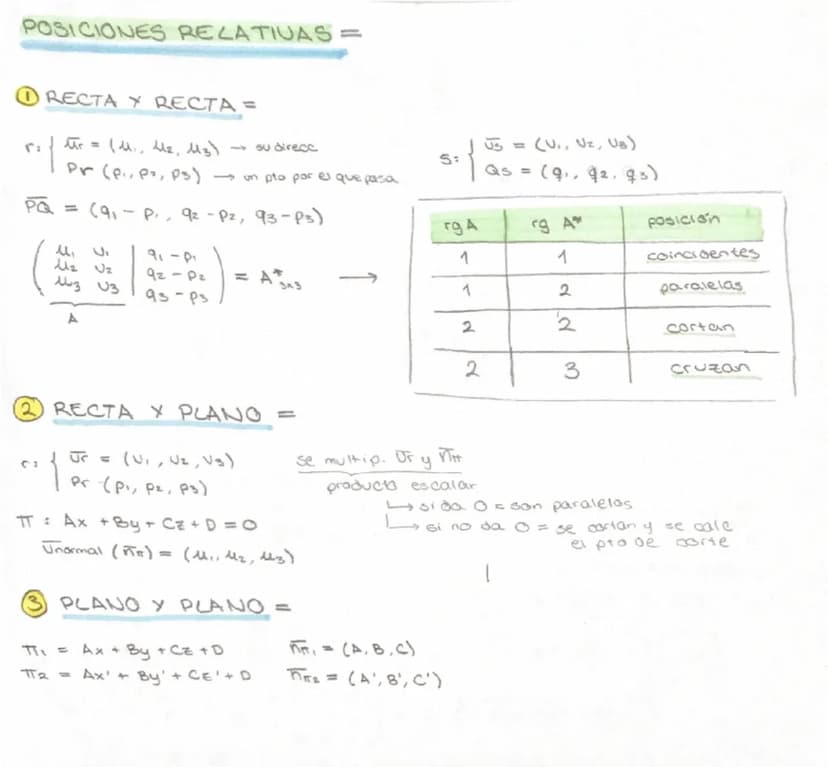 POSICIONES RELATIVAS =
① RECTA Y RECTA =
r: { u̅r = (u₁, u₂, u₃) → su direcc
Pr (p₁, p₂, p₃) → un pto por el que pasa
s: { v̅s = (v₁, v₂, v₃)
Qs = (q₁, q₂, q₃)
P̅Q̅ = (q₁ - p₁, q₂ - p₂, q₃ - p₃)
( u₁ v₁ | q₁ - p₁
u₂ v₂ | q₂ - p₂
u₃ v₃ | q₃ - p₃ ) = A*₃ₓ₃ →
A
rg A rg A* posición
1 1 coincidentes
1 2 paralelas
2 2 cortan
2 3 cruzan
② RECTA Y PLANO =
r: { v̅r = (v₁, v₂, v₃)
Pr (p₁, p₂, p₃)
π : Ax + By + Cz + D = 0
v̅normal (n̅π) = (u₁, u₂, u₃)
se multip. v̅r y n̅π
producto escalar
↳ si da 0 = son paralelos
↳ si no da 0 = se cortan y se calc
el pto de corte
③ PLANO Y PLANO =
π₁ = Ax + By + Cz + D n̅π₁ = (A, B, C)
π₂ = Ax' + By' + Cz' + D n̅π₂ = (A', B', C')